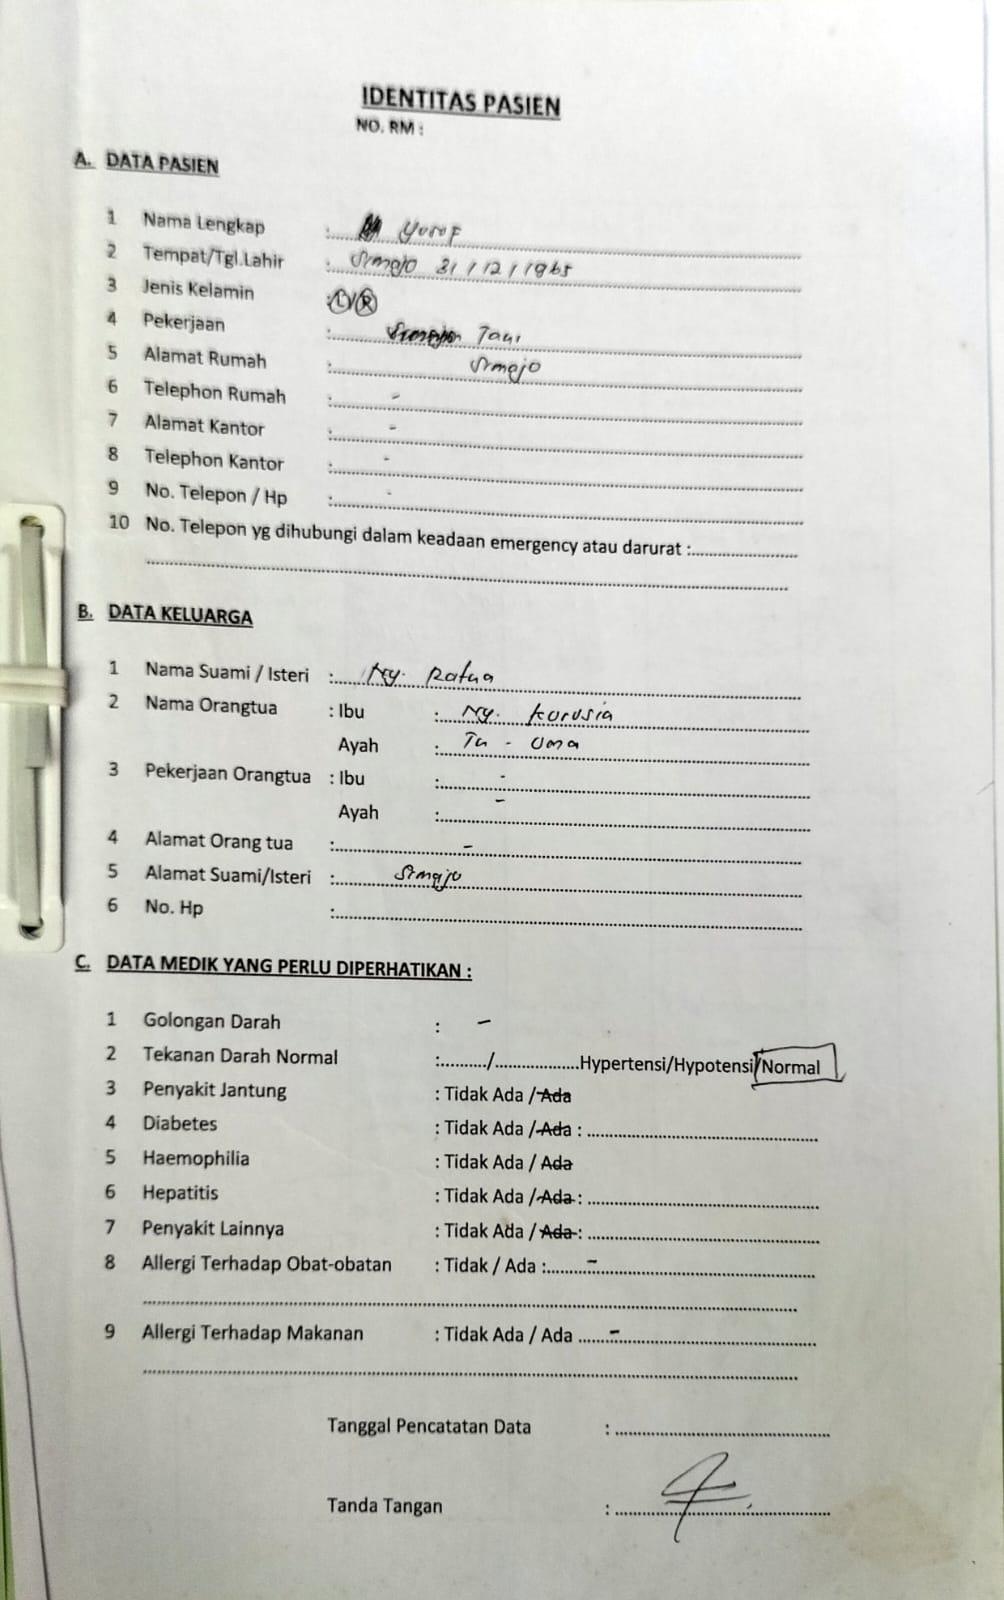 IDENTITAS PASIEN
NO. RM :
A. DATA PASIEN
1 Nama Lengkap : Yusuf
2 Tempat/Tgl.Lahir : Simajo 31/12/1965
3 Jenis Kelamin : L/P
4 Pekerjaan : Tani
5 Alamat Rumah : Simajo
6 Telephon Rumah : -
7 Alamat Kantor : -
8 Telephon Kantor : -
9 No. Telepon / Hp : -
10 No. Telepon yg dihubungi dalam keadaan emergency atau darurat :
B. DATA KELUARGA
1 Nama Suami / Isteri : Ny. Ratna
2 Nama Orangtua : Ibu : Ny. Kurusia
Ayah : Tn - Uma
3 Pekerjaan Orangtua : Ibu : -
Ayah : -
4 Alamat Orang tua : -
5 Alamat Suami/Isteri : Simajo
6 No. Hp :
C. DATA MEDIK YANG PERLU DIPERHATIKAN :
1 Golongan Darah : -
2 Tekanan Darah Normal :........./...................Hypertensi/Hypotensi/Normal
3 Penyakit Jantung : Tidak Ada / Ada
4 Diabetes : Tidak Ada / Ada :
5 Haemophilia : Tidak Ada / Ada
6 Hepatitis : Tidak Ada / Ada :
7 Penyakit Lainnya : Tidak Ada / Ada :
8 Allergi Terhadap Obat-obatan : Tidak / Ada : -
9 Allergi Terhadap Makanan : Tidak Ada / Ada -
Tanggal Pencatatan Data :
Tanda Tangan :